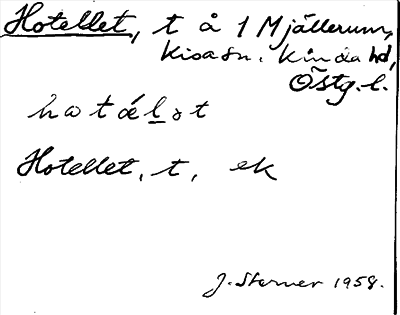 Hotellet, t å 1 Mjällerum,
Kisa sn. Kinda hd,
Östg. l.
hotélət
Hotellet, t, ek
J. Sterner 1958.